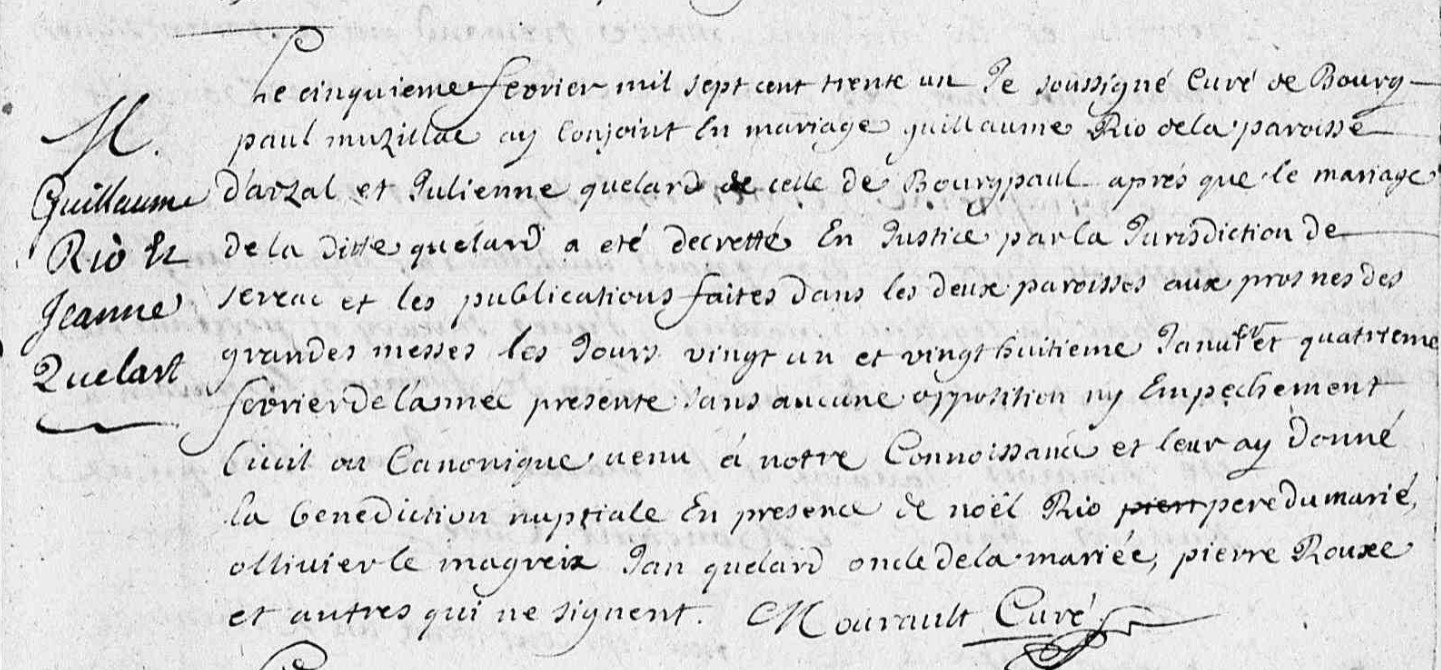 M.
Guillaume
Rio Et
Jeanne
Quelart
Le cinquieme fevrier mil sept cent trente un Je soussigné Curé de Bourg
paul muzillac ay Conjoint En mariage guillaume Rio de la paroisse
d'arzal et Julienne quelard de celle de Bourgpaul après que le mariage
de la ditte quelard a eté decretté En Justice par la Jurisdiction de
serrac et les publications faites dans les deux paroisses aux prosnes des
grandes messes les Jours vingt un et vingt huitieme Janv.er et quatrieme
fevrier de l'année presente sans aucune opposition ny Empechement
Civil ou Canonique venu à notre Connoissance et leur ay Donné
la benediction nuptiale En presence de noël Rio pere du marié,
ollivier le magreix Jan quelard oncle de la mariée, pierre Rouxe
et autres qui ne signent. Mourault Curé